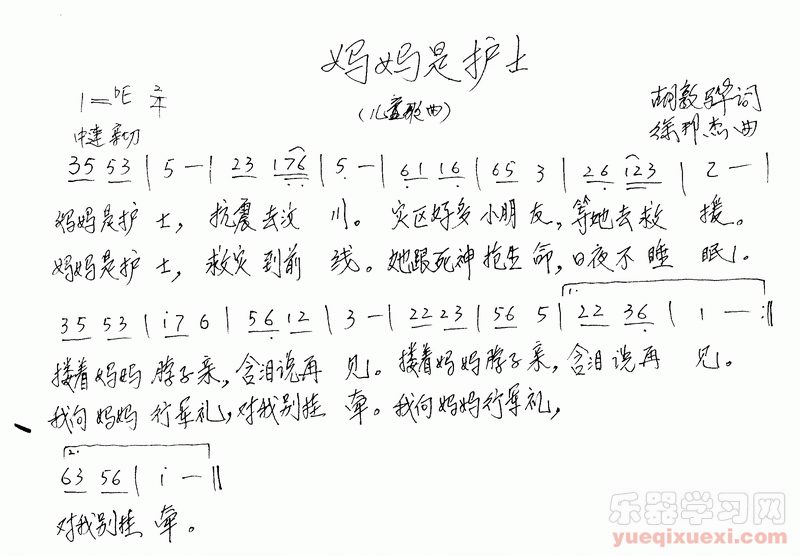 妈妈是护士
(儿童歌曲)
1=bE 2/4
胡敦骅词
中速 亲切
徐邦杰曲
35 53 | 5 — | 23 176 | 5 — | 61 16 | 65 3 | 26 123 | 2 — |
妈妈是护士，抗震去汶川。灾区好多小朋友，等她去救援。
妈妈是护士，救灾到前线。她跟死神抢生命，日夜不睡眠。
35 53 | i7 6 | 56 12 | 3 — | 22 23 | 56 5 | 1. 22 36 | 1 — :||
搂着妈妈脖子亲，含泪说再见。搂着妈妈脖子亲，含泪说再见。
我向妈妈行军礼，对我别挂牵。我向妈妈行军礼，
2. 63 56 | i — ||
对我别挂牵。
乐器学习网
yueqixuexi.com